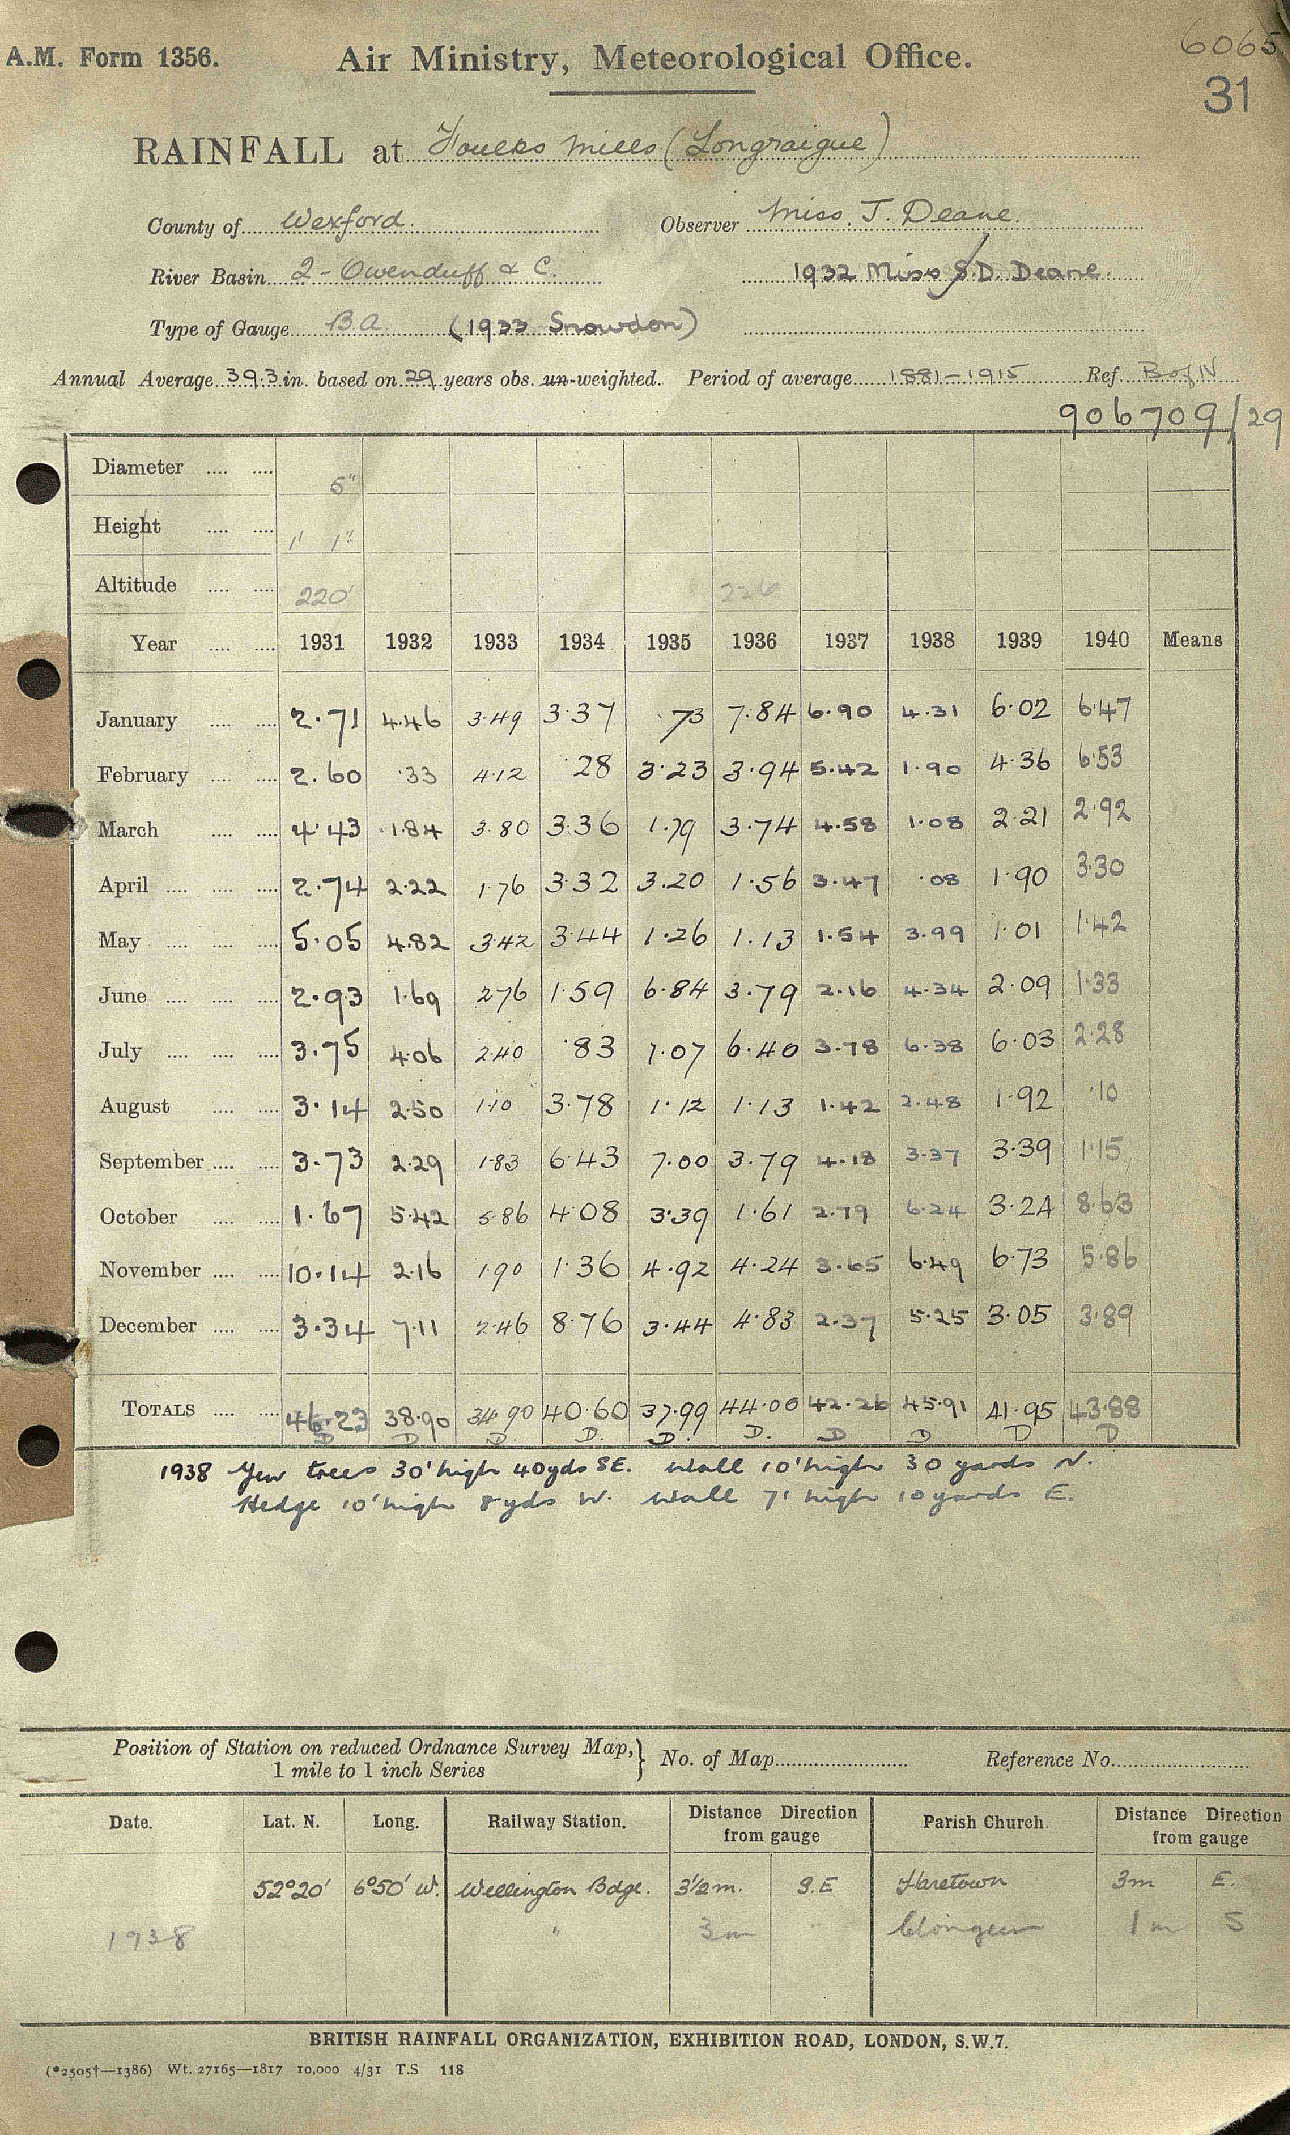 A.M. Form 1356. Air Ministry, Meteorological Office. 6065
31
RAINFALL at Foulks Mills (Longraigue)
County of Wexford. Observer Miss. J. Deane.
River Basin 2 - Owenduff & C. 1932 Miss S.D. Deane.
Type of Gauge B.A. (1933 Snowdon)
Annual Average 39.3 in. based on 29 years obs. un-weighted. Period of average 1881-1915 Ref. B of N
906709/29
Diameter .... .... 5"
Height .... .... 1' 1"
Altitude .... .... 220' 226
Year .... .... 1931 1932 1933 1934 1935 1936 1937 1938 1939 1940 Means
January .... .... 2.71 4.46 3.49 3.37 .73 7.84 6.90 4.31 6.02 6.47
February .... .... 2.60 .33 4.12 .28 3.23 3.94 5.42 1.90 4.36 6.53
March .... .... 4.43 1.84 3.80 3.36 1.79 3.74 4.58 1.08 2.21 2.92
April .... .... .... 2.74 2.22 1.76 3.32 3.20 1.56 3.47 .08 1.90 3.30
May .... .... .... 5.05 4.82 3.42 3.44 1.26 1.13 1.54 3.99 1.01 1.42
June .... .... .... 2.93 1.69 2.76 1.59 6.84 3.79 2.16 4.34 2.09 1.33
July .... .... .... 3.75 4.06 2.40 .83 1.07 6.40 3.78 6.38 6.03 2.28
August .... .... 3.14 2.50 1.10 3.78 1.12 1.13 1.42 2.48 1.92 .10
September .... .... 3.73 2.29 1.83 6.43 7.00 3.79 4.18 3.37 3.39 1.15
October .... .... 1.67 5.42 5.86 4.08 3.39 1.61 2.79 6.24 3.24 8.63
November .... .... 10.14 2.16 1.90 1.36 4.92 4.24 3.65 6.49 6.73 5.86
December .... .... 3.34 7.11 2.46 8.76 3.44 4.83 2.37 5.25 3.05 3.89
TOTALS .... .... 46.23 38.90 34.90 40.60 37.99 44.00 42.26 45.91 41.95 43.88
D D D D. D. D. D D D D
1938 Yew trees 30' high 40yds SE. Wall 10' high 30 yards N.
Hedge 10' high 8 yds W. Wall 7' high 10 yards E.
Position of Station on reduced Ordnance Survey Map, } No. of Map Reference No.
1 mile to 1 inch Series
Date. Lat. N. Long. Railway Station. Distance Direction from gauge Parish Church Distance Direction from gauge
52°20' 6°50' W. Wellington Bdge. 3½m. S.E Haretown 3m E.
1938 " 3m Clongeen 1m S
BRITISH RAINFALL ORGANIZATION, EXHIBITION ROAD, LONDON, S.W.7.
(*2505†—1386) Wt. 27165—1817 10,000 4/31 T.S 118